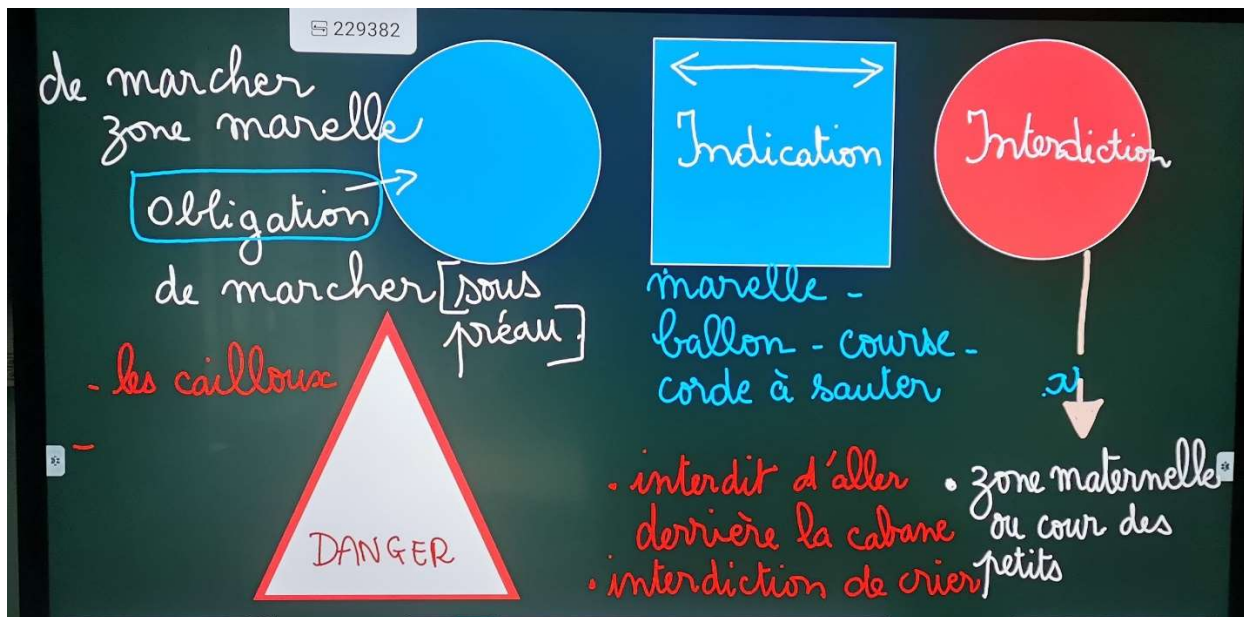 229382
de marcher
zone marelle
Obligation
de marcher [sous
préau]
Indication
marelle -
ballon - course -
corde à sauter
Interdiction
- les cailloux
-
DANGER
• interdit d'aller
derrière la cabane
• interdiction de crier
• zone maternelle
ou cour des
petits